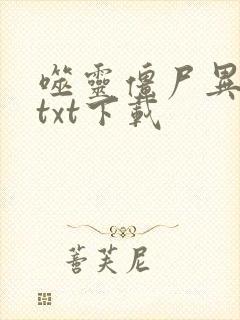 噬靈僵尸異
txt下載
蒼芙尼